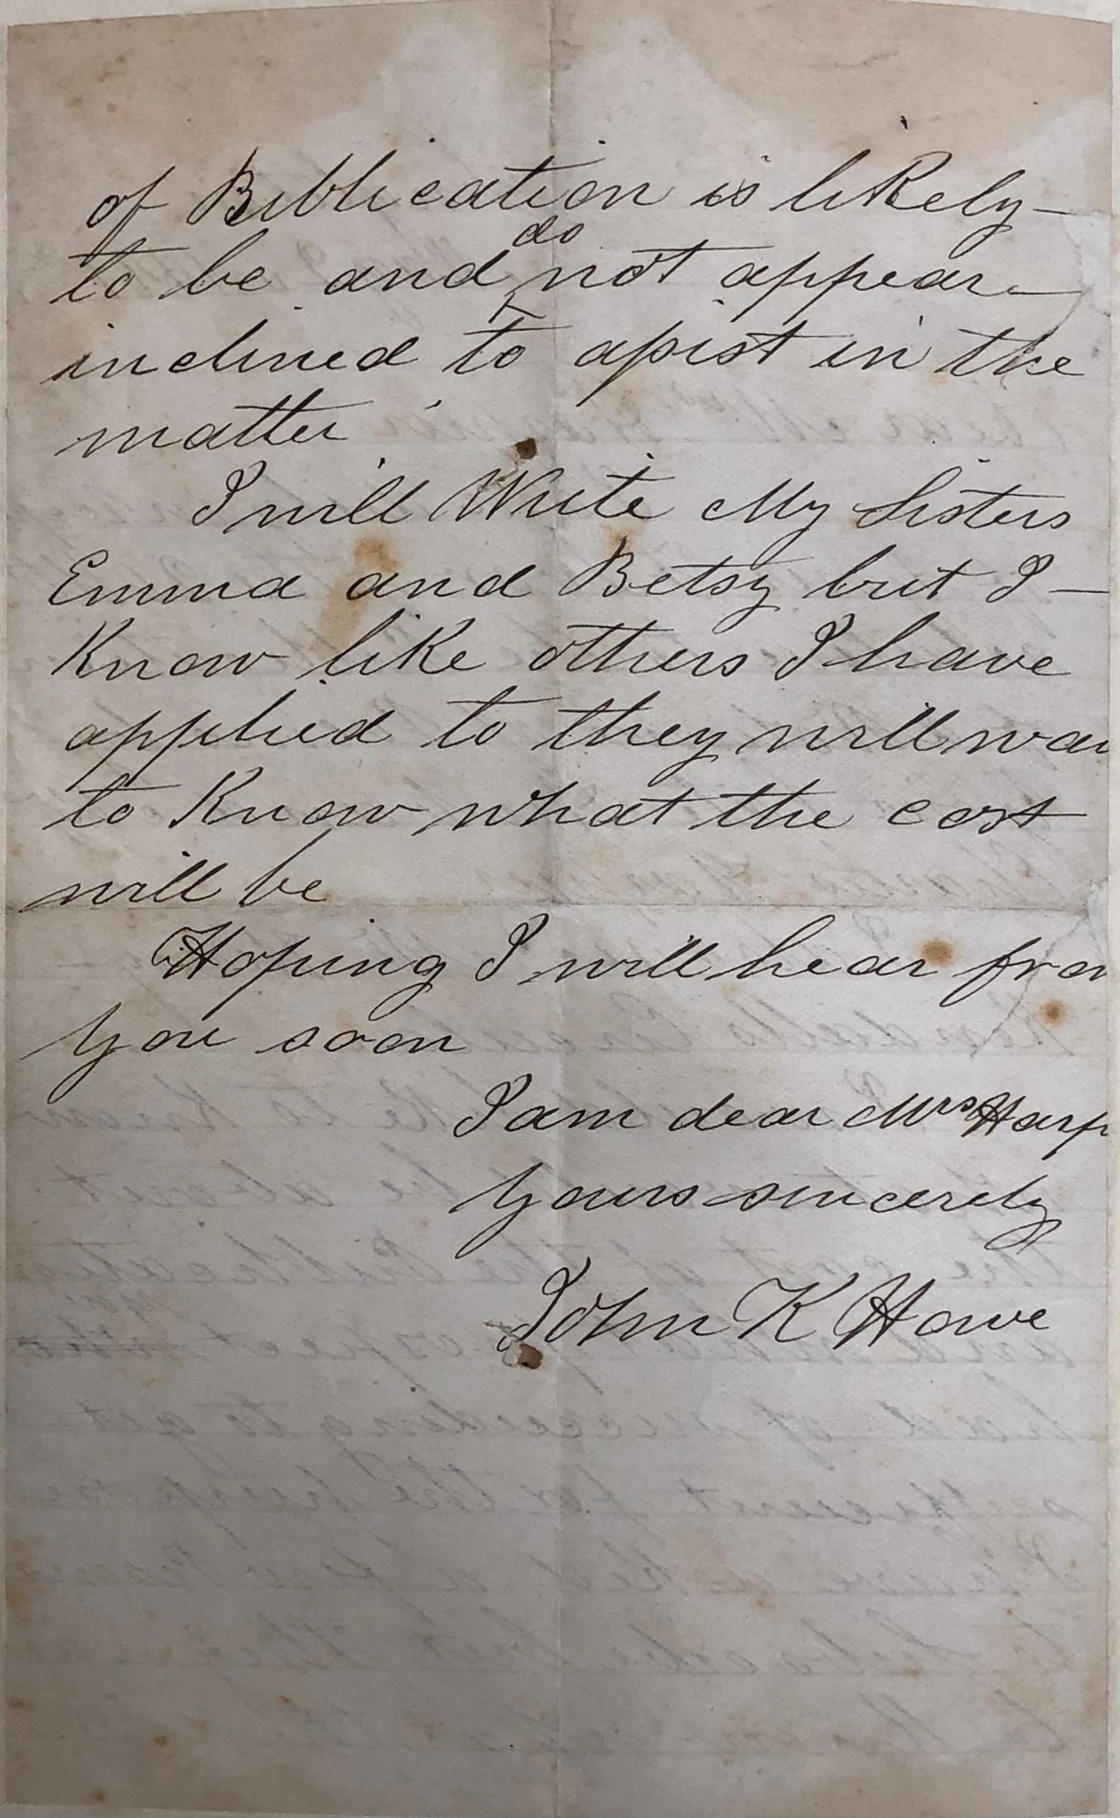 of Bublication is likely
to be and do not appear
inclined to assist in the
matter
I will Write My Sisters
Emma and Betsy but I
Know like others I have
applied to they will wa
to Know what the cost
will be
Hoping I will hear fro
you soon
I am dear Mrs Harp
Yours sincerely
John K Howe